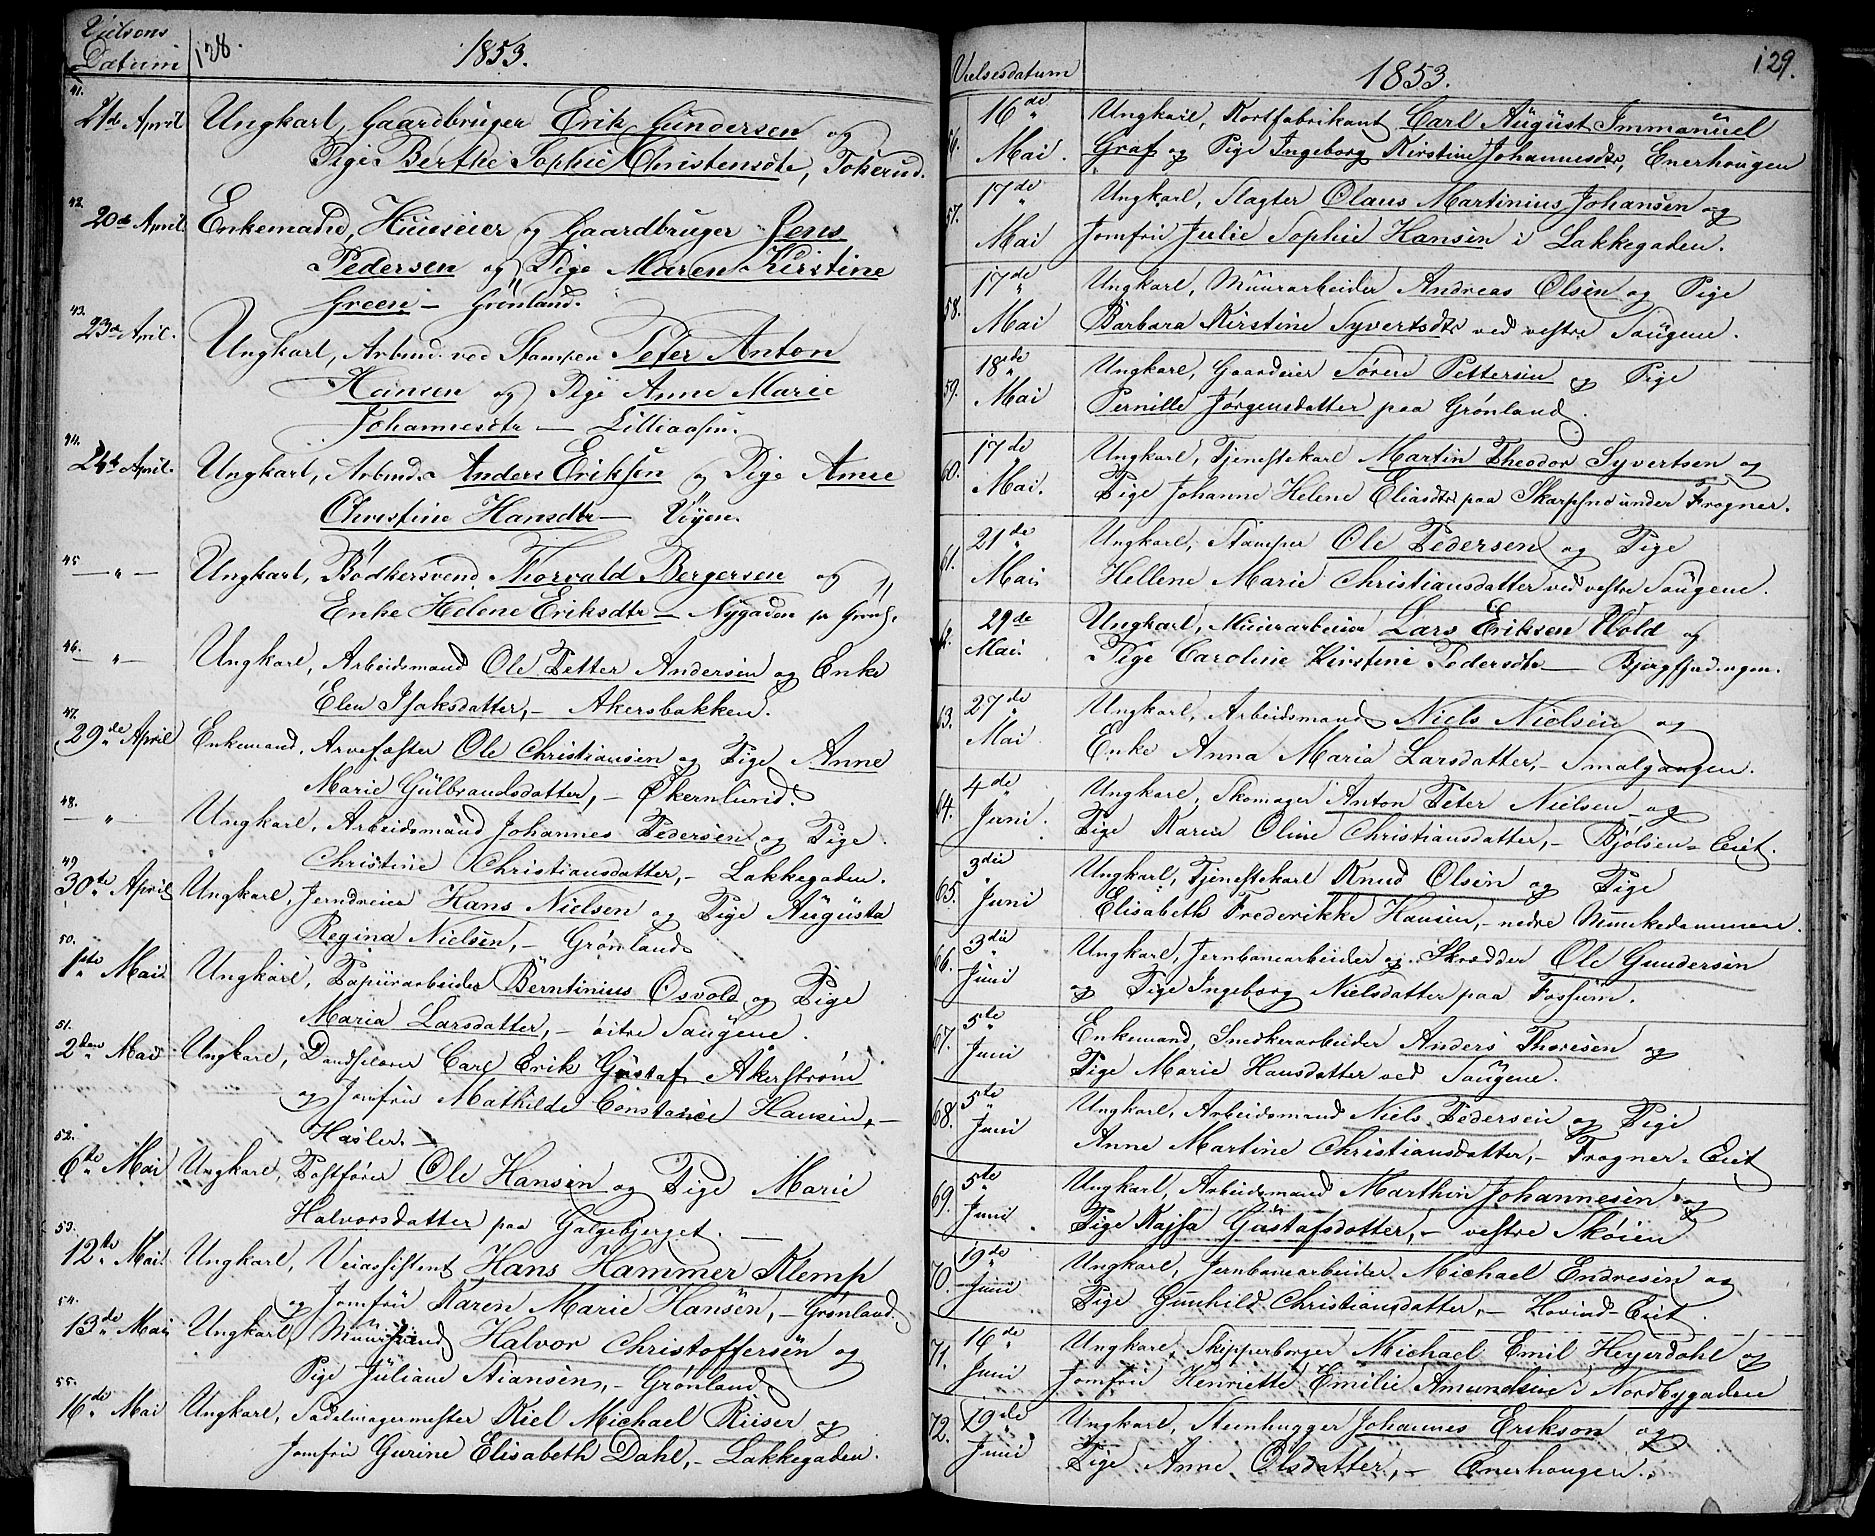 Vielsens
Datum
128.
1853.
41.
21de April Ungkarl, Gaardbruger Erik Gundersen og
Pige Berthe Sophie Christensdtr, Tokerud.
42.
20de April Enkemand, Huuseier og Gaardbruger Jens
Pedersen og Pige Maren Kirstine
Green — Grønland.
43.
23de April. Ungkarl, Arbmd. ved Stampen Peter Anton
Hansen og Pige Anne Marie
Johannesdtr —
44.
24de April. Ungkarl, Arbmd. Anders Eriksen og Pige Anne
Christine Hansdtr — Vøyen.
45
— " — Ungkarl, Bødkersvend Thorvald Bergersen og
Enke Helene Eriksdtr — Nygaden pr Grønl.
46.
— " — Ungkarl, Arbeidsmand Ole Petter Andersen og Enke
Elen Isaksdatter, — Akersbakken.
47.
29de April Enkemand, Arvefæster Ole Christiansen og Pige Anne
Marie Gulbrandsdatter, — Økernlund.
48.
— " — Ungkarl, Arbeidsmand Johannes Pedersen og Pige
Christine Christiansdatter, — Lakkegaden.
49.
30te April Ungkarl, Jerndreier Hans Nielsen og Pige Augusta
Regina Nielsen, — Grønland
50.
1ste Mai. Ungkarl, Papiirarbeider Berntinius Osvold og Pige
Maria Larsdatter, — østre Saugene.
51.
2den Mai Ungkarl, Carl Erik Gustaf Åkerstrøm
og Jomfru Mathilde Constance Hansen, —
Hasler. —
52.
6te Mai Ungkarl, Postfører Ole Hansen og Pige Marie
Halvorsdatter paa Galgebjerget. —
53.
12te Mai. Ungkarl, Veiassistent Hans Hammer Klemp
og Jomfru Karen Marie Hansen, — Grønland.
54.
13de Mai Ungkarl, Halvor Christoffersen og
Pige Juliane Stiansen, — Grønland
55.
16de Mai Ungkarl, Sadelmagermester Kiel Michael Riiser og
Jomfru Gurine Elisabeth Dahl, — Lakkegaden.
Vielsesdatum
1853.
129.
56. 16de Mai. Ungkarl, Kortfabrikant Carl August Immanuel
Graf og Pige Ingeborg Kirstine Johannesdtr, Enerhougen
57. 17de Mai Ungkarl, Slagter Olaus Martinius Johansen og
Jomfru Julie Sophie Hansen i Lakkegaden.
58. 17de Mai Ungkarl, Muurarbeider Andreas Olsen og Pige
Barbara Kirstine Syvertsdtr ved vestre Saugene.
59. 18de Mai Ungkarl, Gaardeier Søren Pettersen og Pige
Pernille Jørgensdatter paa Grønland.
60. 17de Mai. Ungkarl, Tjenestekarl Martin Theodor Syvertsen og
Pige Johanne Helene Eliasdtr paa Skarpsno under Frogner.
61. 21de Mai Ungkarl, Stamper Ole Pedersen og Pige
Hellene Marie Christiansdatter ved vestre Saugene.
62. 29de Mai Ungkarl, Muurarbeider Lars Eriksen Wold og
Pige Caroline Kirstine Pedersdtr —
63. 27de Mai Ungkarl, Arbeidsmand Niels Nielsen og
Enke Anna Maria Larsdatter, — Smalgangen.
64. 4de Juni. Ungkarl, Skomager Anton Peter Nielsen og
Pige Karen Oline Christiansdatter, — Bjølsen-Eiet.
65. 3die Juni Ungkarl, Tjenestekarl Knud Olsen og Pige
Elisabeth Frederikke Hansen, — nedre Munkedammen.
66. 3die Juni Ungkarl, Jernbanearbeider og Skrædder Ole Gundersen
og Pige Ingeborg Nielsdatter paa Fossum.
67. 5te Juni Enkemand, Snedkerarbeider Anders Thoresen og
Pige Marie Hansdatter ved Saugene.
68. 5te Juni Ungkarl, Arbeidsmand Niels Pedersen og Pige
Anne Martine Christiansdatter, — Frogner-Eiet
69. 5te Juni Ungkarl, Arbeidsmand Marthin Johannesen og
Pige Kajsa Gustafsdatter, — vestre Skøien
70. 19de Juni Ungkarl, Jernbanearbeider Michael Endresen og
Pige Gunhild Christiansdatter, — Hovind-Eiet.
71. 16de Juni Ungkarl, Skipperborger Michael Emil Heyerdahl og
Jomfru Henriette Emilie Amundsen i Nordbygaden
72. 19de Juni Ungkarl, Steenhugger Johannes Erikson og
Pige Anne Olsdatter, — Enerhougen.